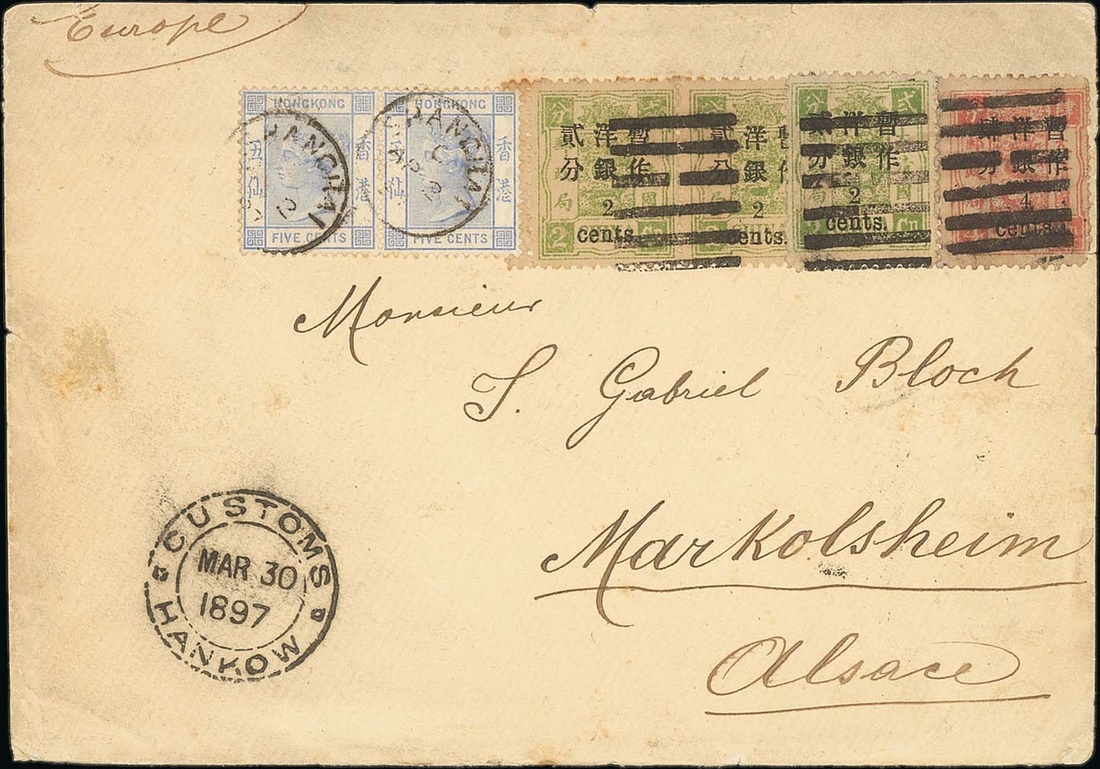 Europe
HONGKONG HONGKONG
香港 香港
五仙 仙
FIVE CENTS FIVE CENTS
HANGHAI HANGHAI
AP 2
暫作 洋銀 貳分
2
cents.
暫作 洋銀 貳分
2
cents.
暫作 洋銀 貳分
2
cents.
暫作 洋銀 肆分
4
cents.
Monsieur
J. Gabriel Bloch
Markolsheim
Alsace
CUSTOMS
MAR 30
1897
HANKOW